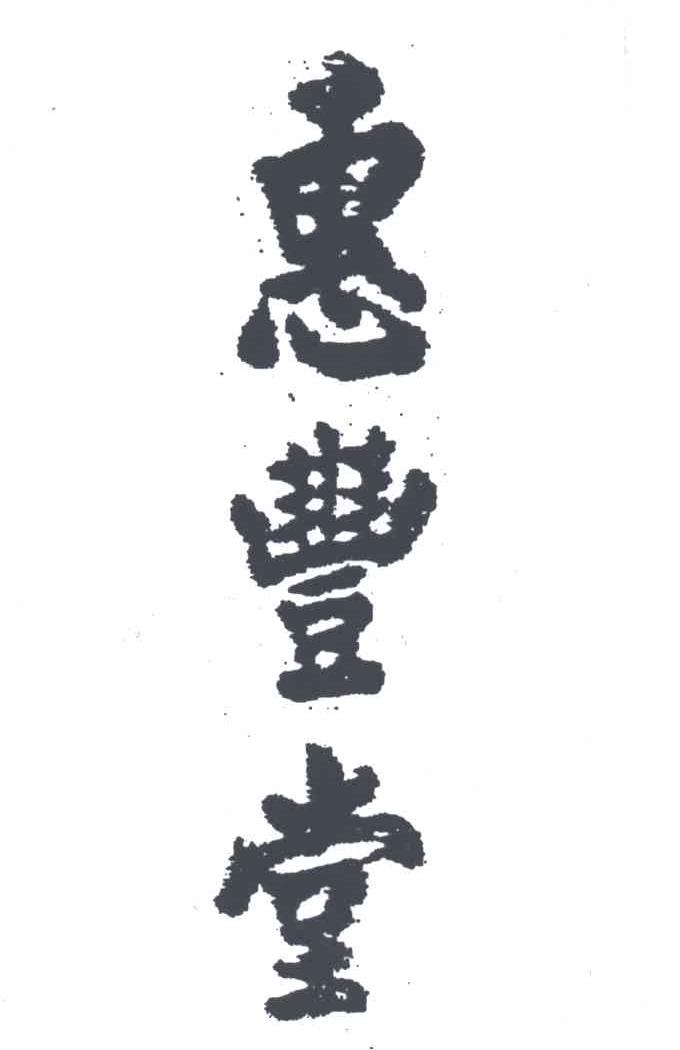 惠豐堂